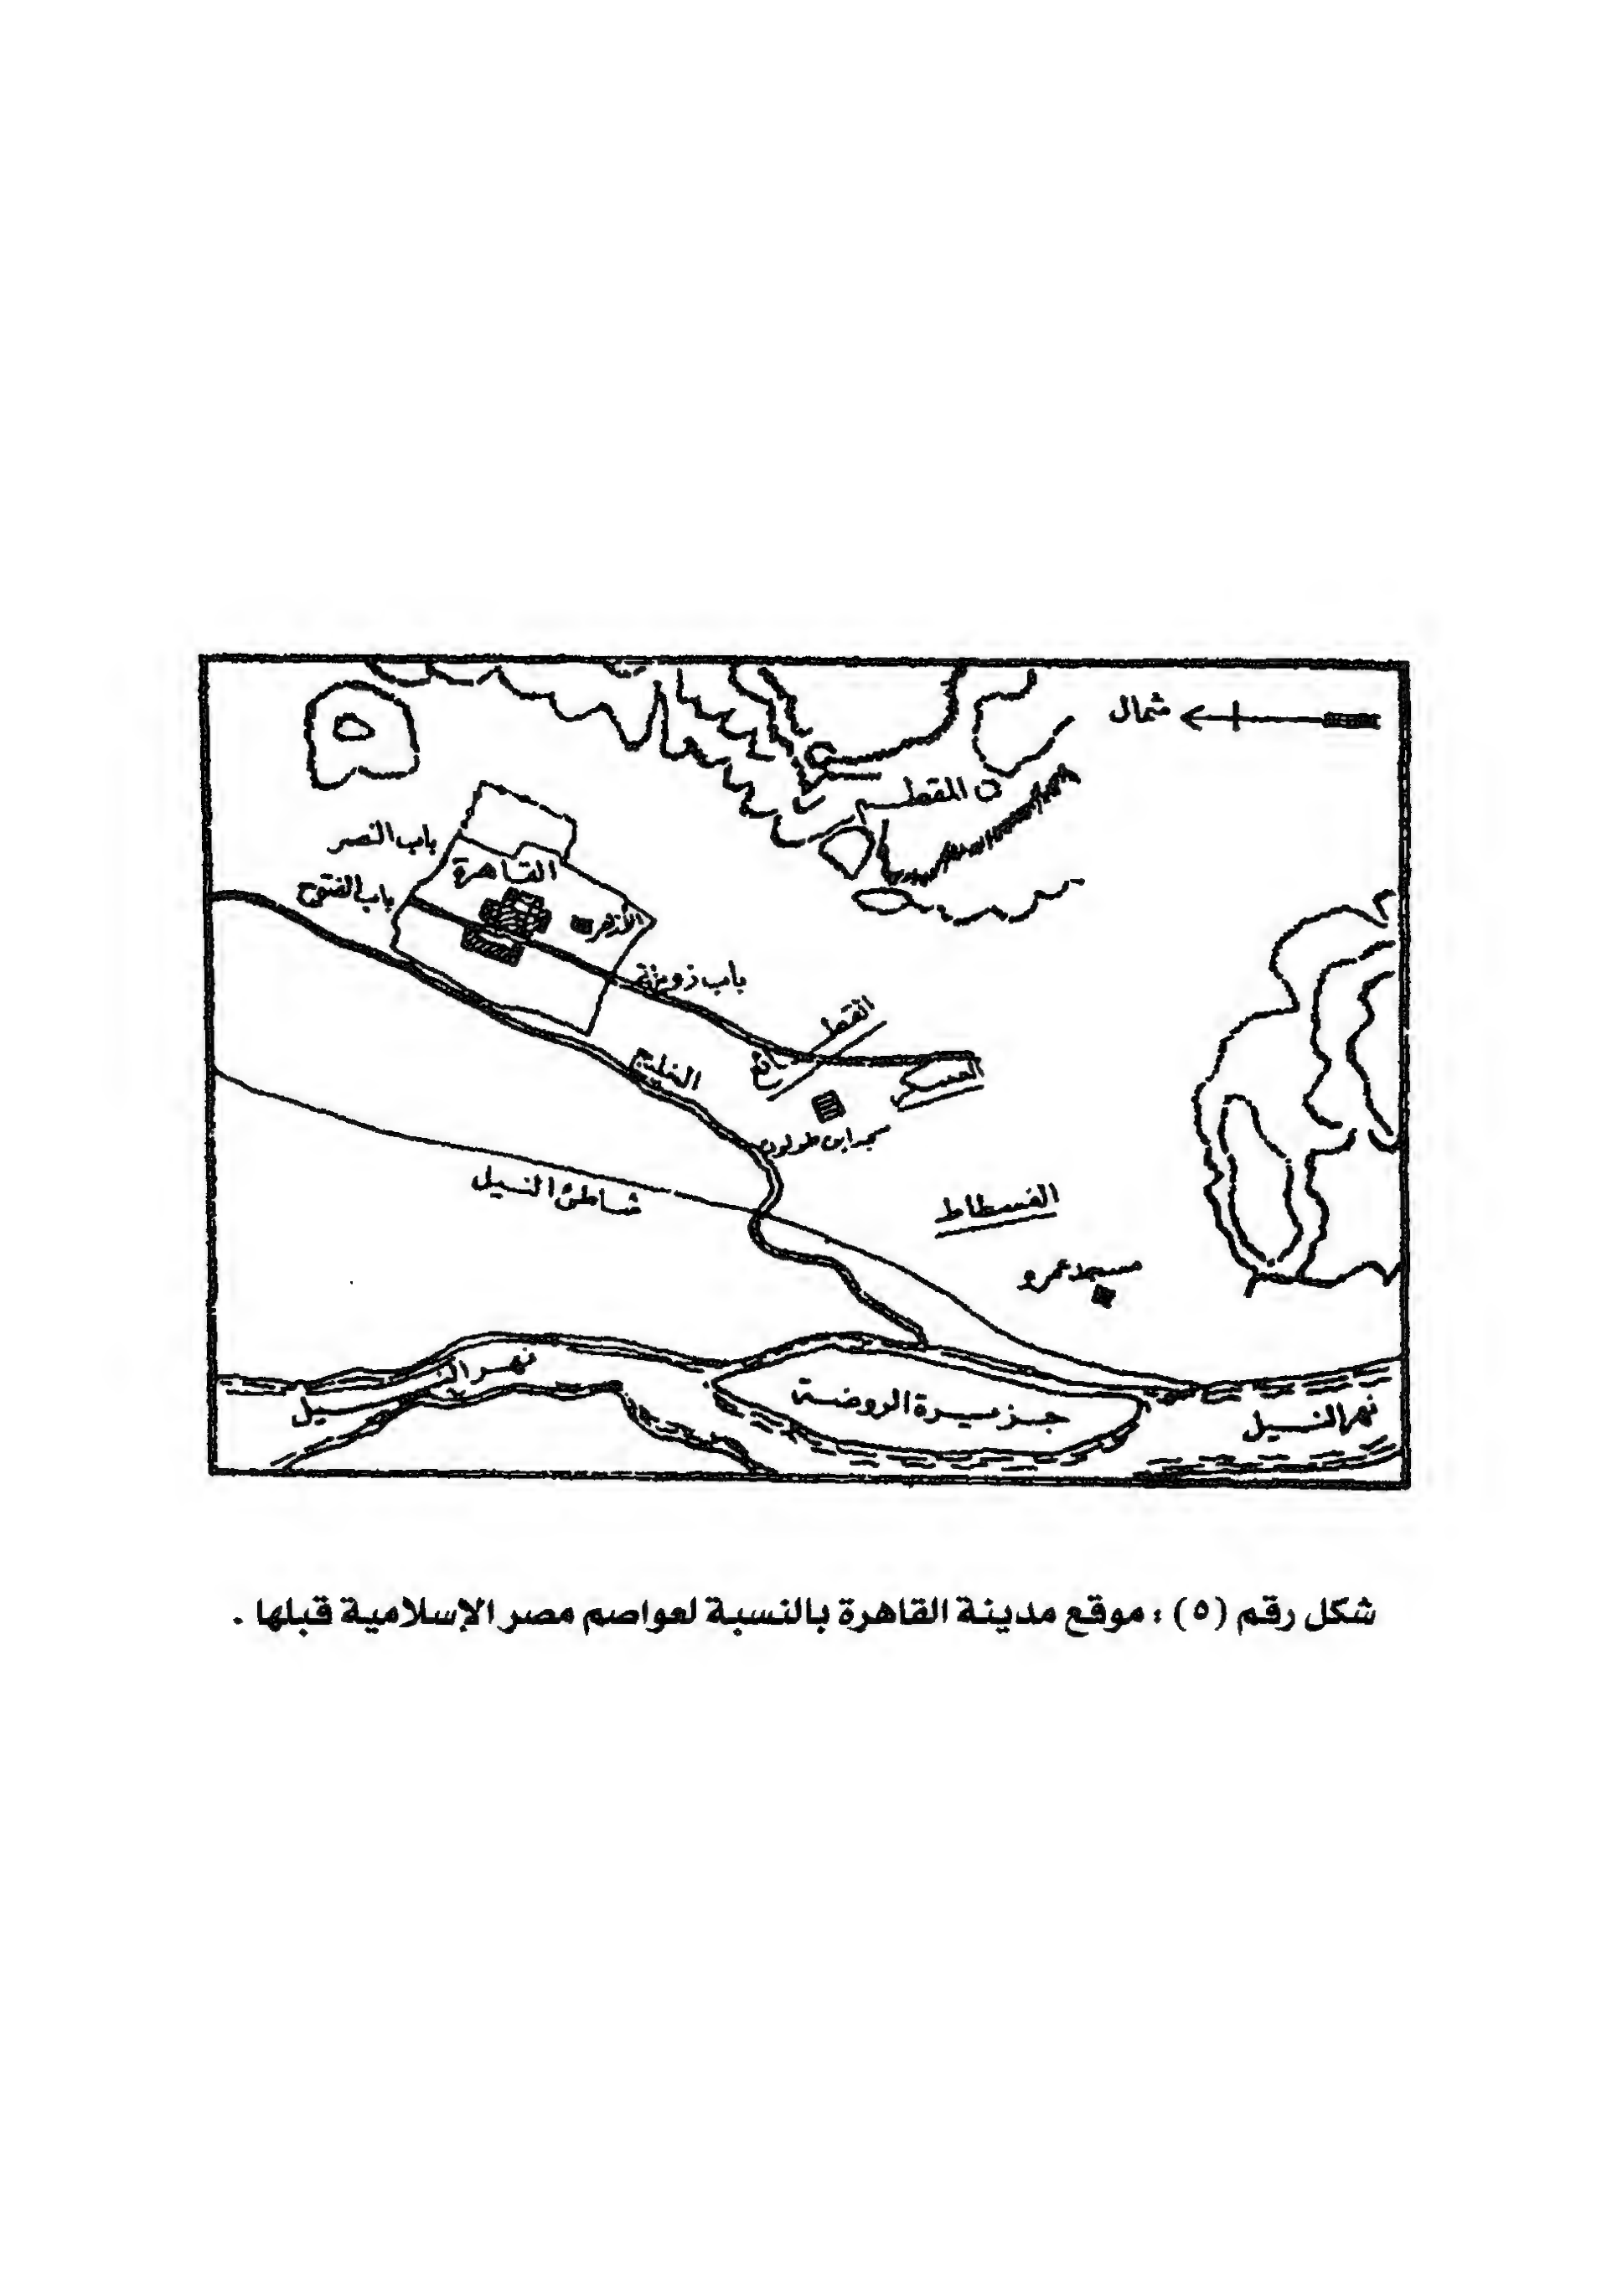 شمال
المقطم
باب النصر
القاهرة
باب الفتوح
الأزهر
باب زويلة
القطائع
الخليج
العسكر
مسجد ابن طولون
شاطئ النيل
الفسطاط
مسجد عمرو
نهر النيل
جزيرة الروضة
نهر النيل
شكل رقم (٥) : موقع مدينة القاهرة بالنسبة لعواصم مصر الإسلامية قبلها .